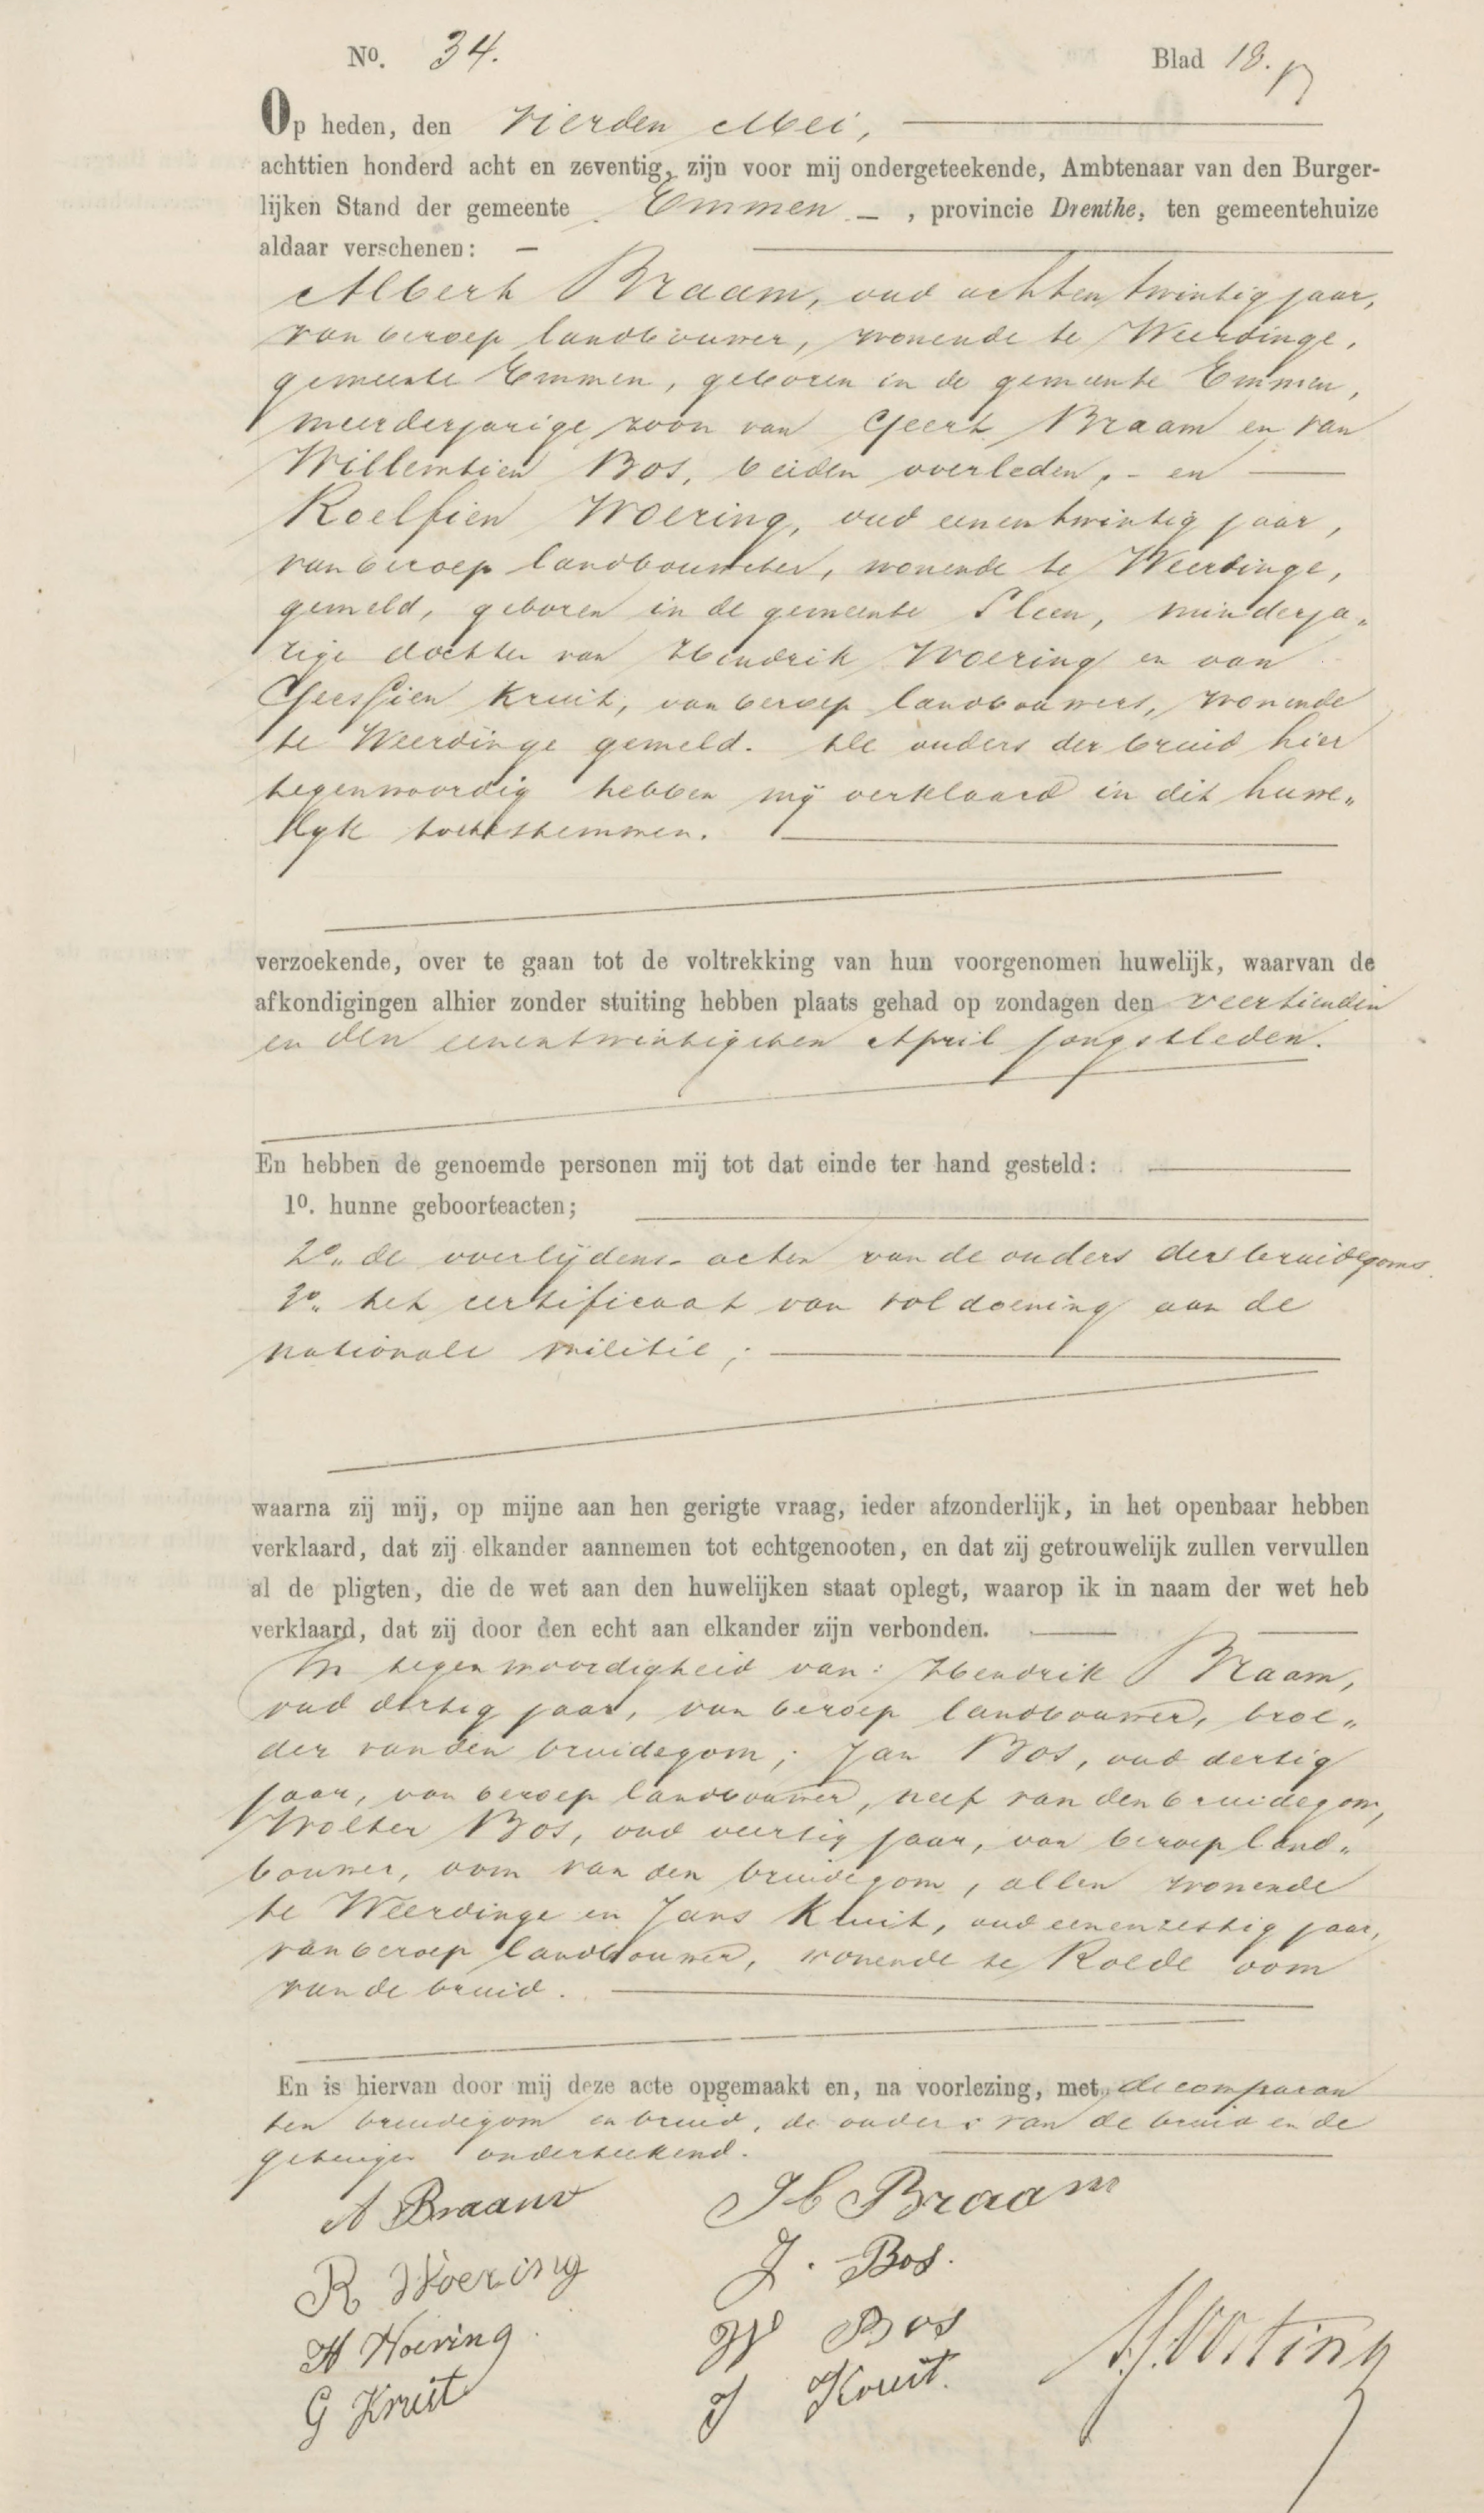 No. 34. Blad 18.
Op heden, den Vierden Mei,
achttien honderd acht en zeventig, zijn voor mij ondergeteekende, Ambtenaar van den Burger-
lijken Stand der gemeente Emmen — , provincie Drenthe, ten gemeentehuize
aldaar verschenen: —
Albert Braam, oud achtentwintig jaar,
van beroep landbouwer, wonende te Weerdinge,
gemeente Emmen, geboren in de gemeente Emmen,
meerderjarige zoon van Geert Braam en van
Willemtien Bos, beiden overleden, - en
Roelfien Woering, oud eenentwintig jaar,
van beroep landbouwster, wonende te Weerdinge,
gemeld, geboren in de gemeente Sleen, minderja„
rige dochter van Hendrik Woering en van
Geessien Kruit, van beroep landbouwers, wonende
te Weerdinge gemeld. De ouders der bruid hier
tegenwoordig hebben mij verklaard in dit huwe„
lijk toetestemmen.
verzoekende, over te gaan tot de voltrekking van hun voorgenomen huwelijk, waarvan de
afkondigingen alhier zonder stuiting hebben plaats gehad op zondagen den veertienden
en den eenentwintigsten April jongstleden.
En hebben de genoemde personen mij tot dat einde ter hand gesteld:
1o. hunne geboorteacten;
2o. de overlijdens- acten van de ouders des bruidegoms
3o. het certificaat van voldoening aan de
nationale militie;
waarna zij mij, op mijne aan hen gerigte vraag, ieder afzonderlijk, in het openbaar hebben
verklaard, dat zij elkander aannemen tot echtgenooten, en dat zij getrouwelijk zullen vervullen
al de pligten, die de wet aan den huwelijken staat oplegt, waarop ik in naam der wet heb
verklaard, dat zij door den echt aan elkander zijn verbonden.
In tegenwoordigheid van: Hendrik Braam,
oud dertig jaar, van beroep landbouwer, broe„
der van den bruidegom; Jan Bos, oud dertig
jaar, van beroep landbouwer, neef van den bruidegom,
Wolter Bos, oud veertig jaar, van beroep land„
bouwer, oom van den bruidegom, allen wonende
te Weerdinge en Jans Kruit, oud eenenzestig jaar,
van beroep landbouwer, wonende te Rolde oom
van de bruid.
En is hiervan door mij deze acte opgemaakt en, na voorlezing, met de comparan
ten bruidegom en bruid, de ouders van de bruid en de
getuigen onderteekend.
A Braam H Braam
R Woering J. Bos.
H Woering. W Bos
G Kruit J Kruit.